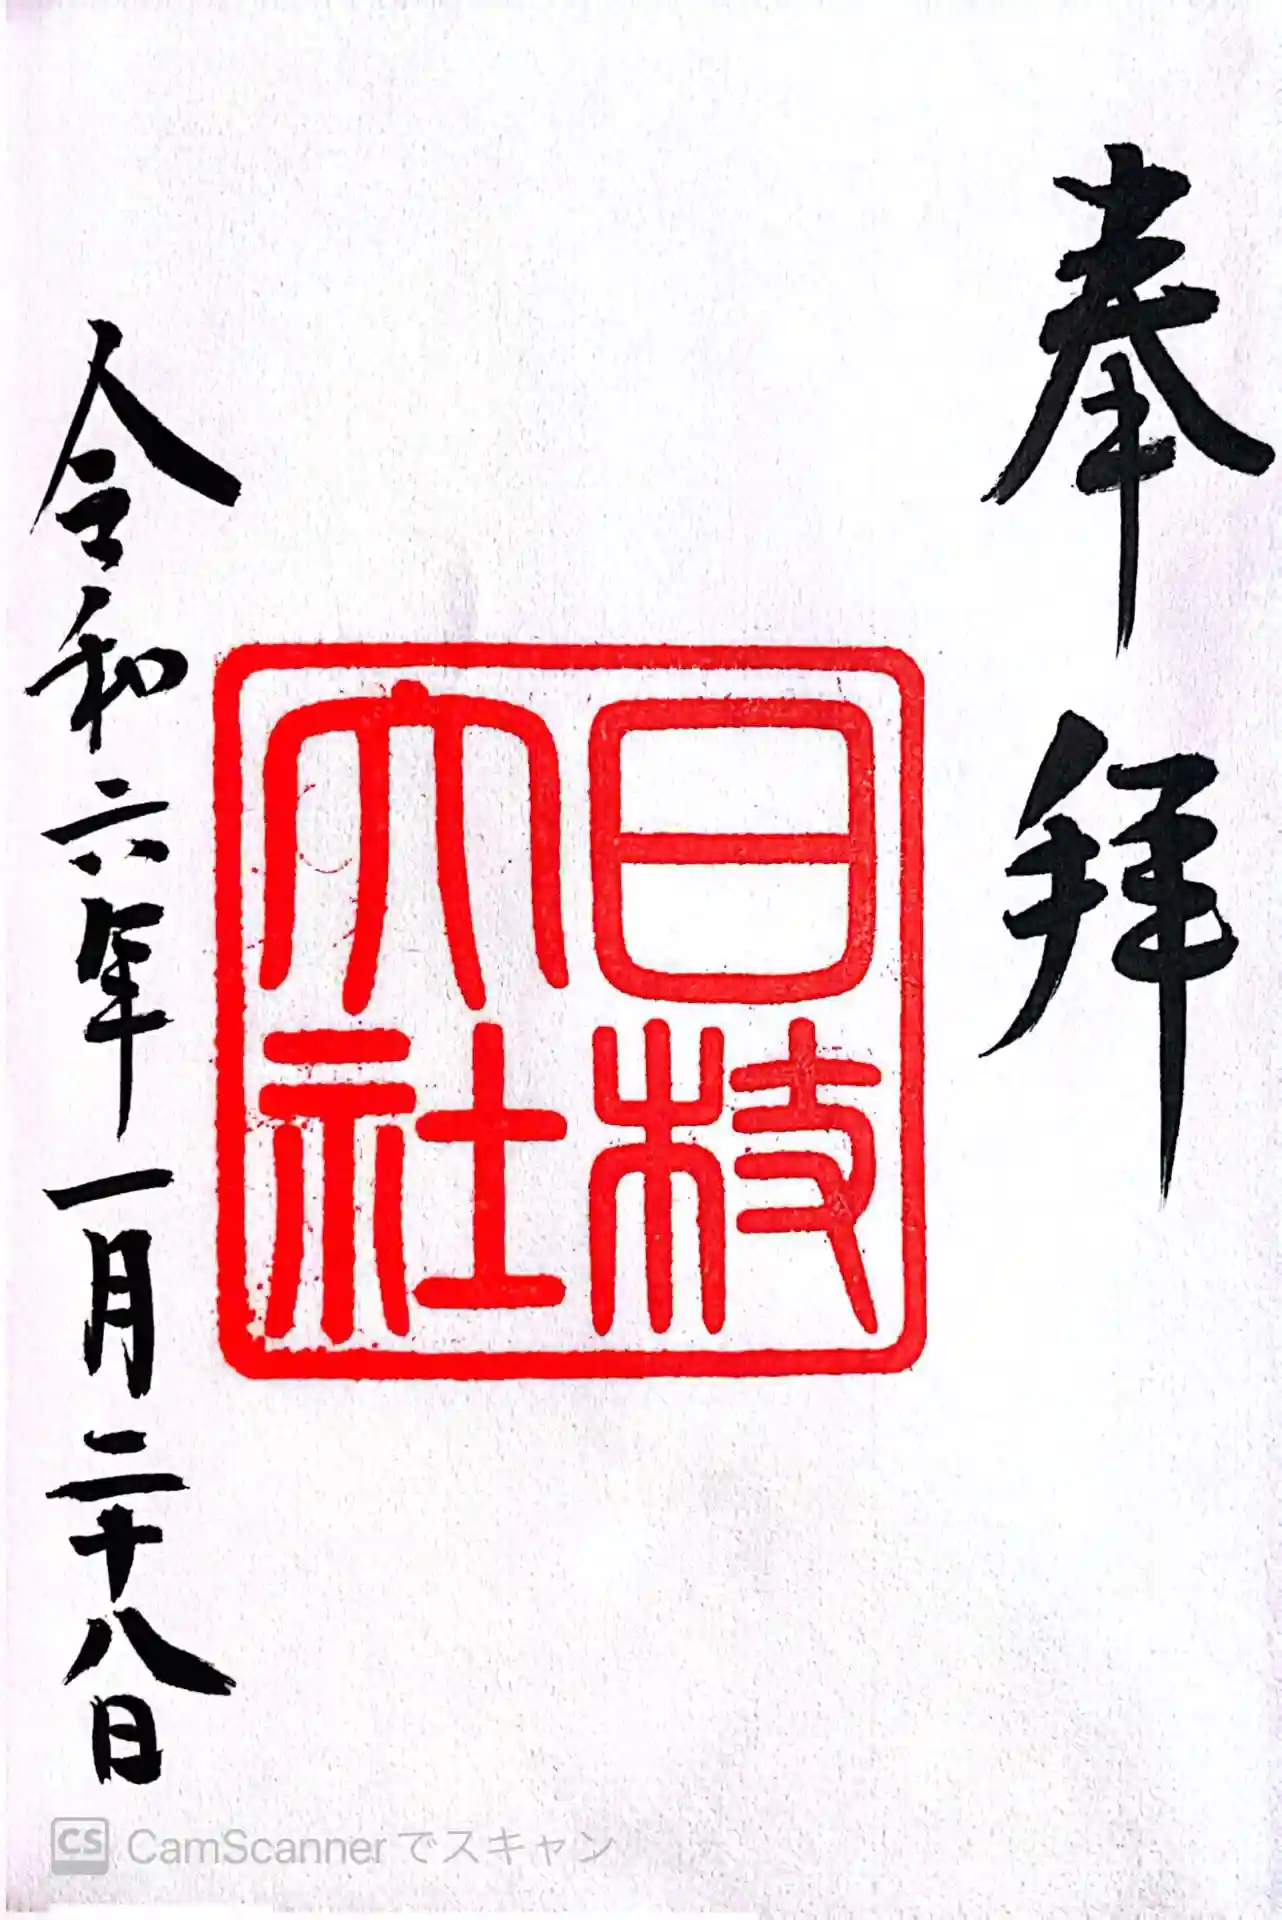 奉拝
日枝
大社
令和六年一月二十八日
CS CamScannerでスキャン